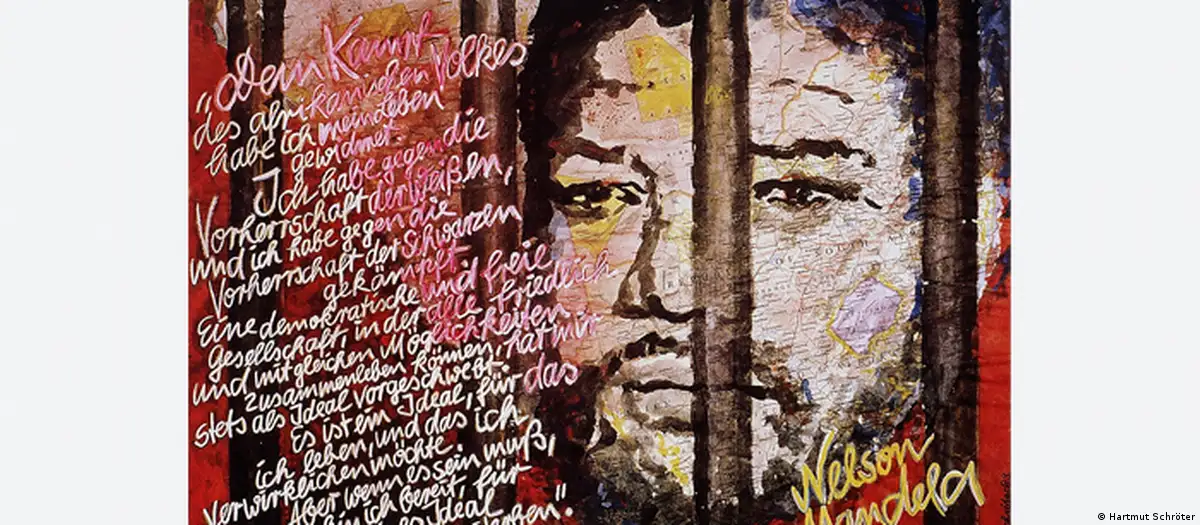 "Dem Kampf
des afrikanischen Volkes
habe ich mein Leben
gewidmet.
Ich habe gegen die
Vorherrschaft der Weißen,
und ich habe gegen die
Vorherrschaft der Schwarzen
gekämpft.
Eine demokratische und freie
Gesellschaft, in der alle friedlich
und mit gleichen Möglichkeiten
zusammenleben können, hat mir
stets als Ideal vorgeschwebt.
Es ist ein Ideal, für das
ich leben, und das ich
verwirklichen möchte.
Aber wenn es sein muß,
bin ich bereit, für
Ideal
"
Nelson
Mandela
© Hartmut Schröter